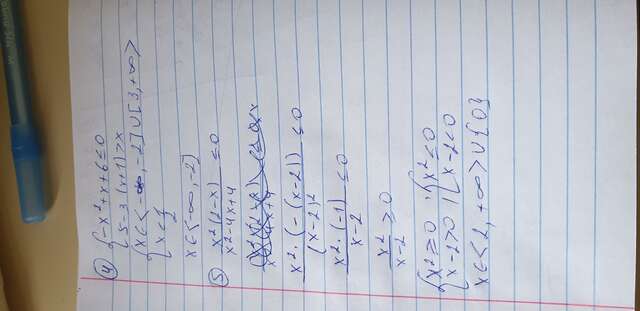 ④ { -x² + x + 6 ≤ 0
{ 5 - 3(x+1) > x
{ x ∈ < -∞, -2] ∪ [3, +∞ >
{ x < 1/2
x ∈ < -∞, -2]
⑤ x²(2-x) / x² - 4x + 4 ≤ 0
x² · (-(x-2)) / (x-2)² ≤ 0
x² · (-1) / x-2 ≤ 0
x² / x-2 ≥ 0
{ x² ≥ 0 , { x² ≤ 0
{ x-2 > 0 / { x-2 < 0
x ∈ < 2, +∞ > ∪ {0}